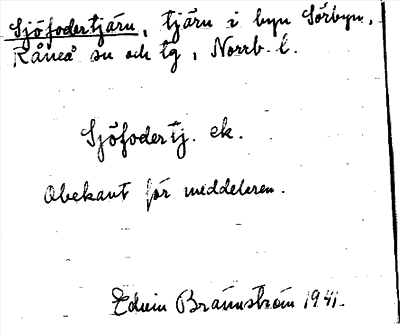 Sjöfodertjärn, tjärn i byn Sörbyn,
Råneå sn och tg, Norrb. l.
Sjöfodertj. ek.
Obekant för meddelaren.
Edvin Brännström 1941.